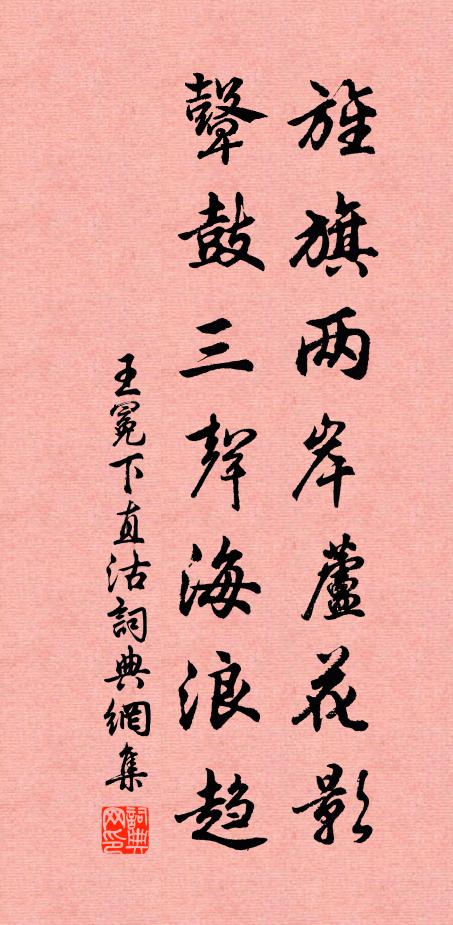 旌旗两岸蘆花影
鼙鼓三聲海浪趋
王冕下直沽詞典網集
詞典网印